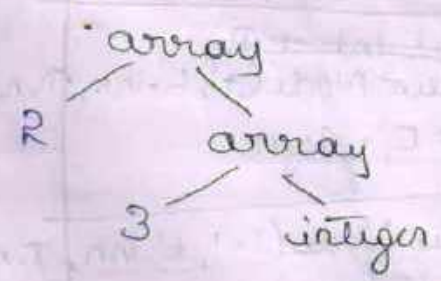 array
2
array
3
integer